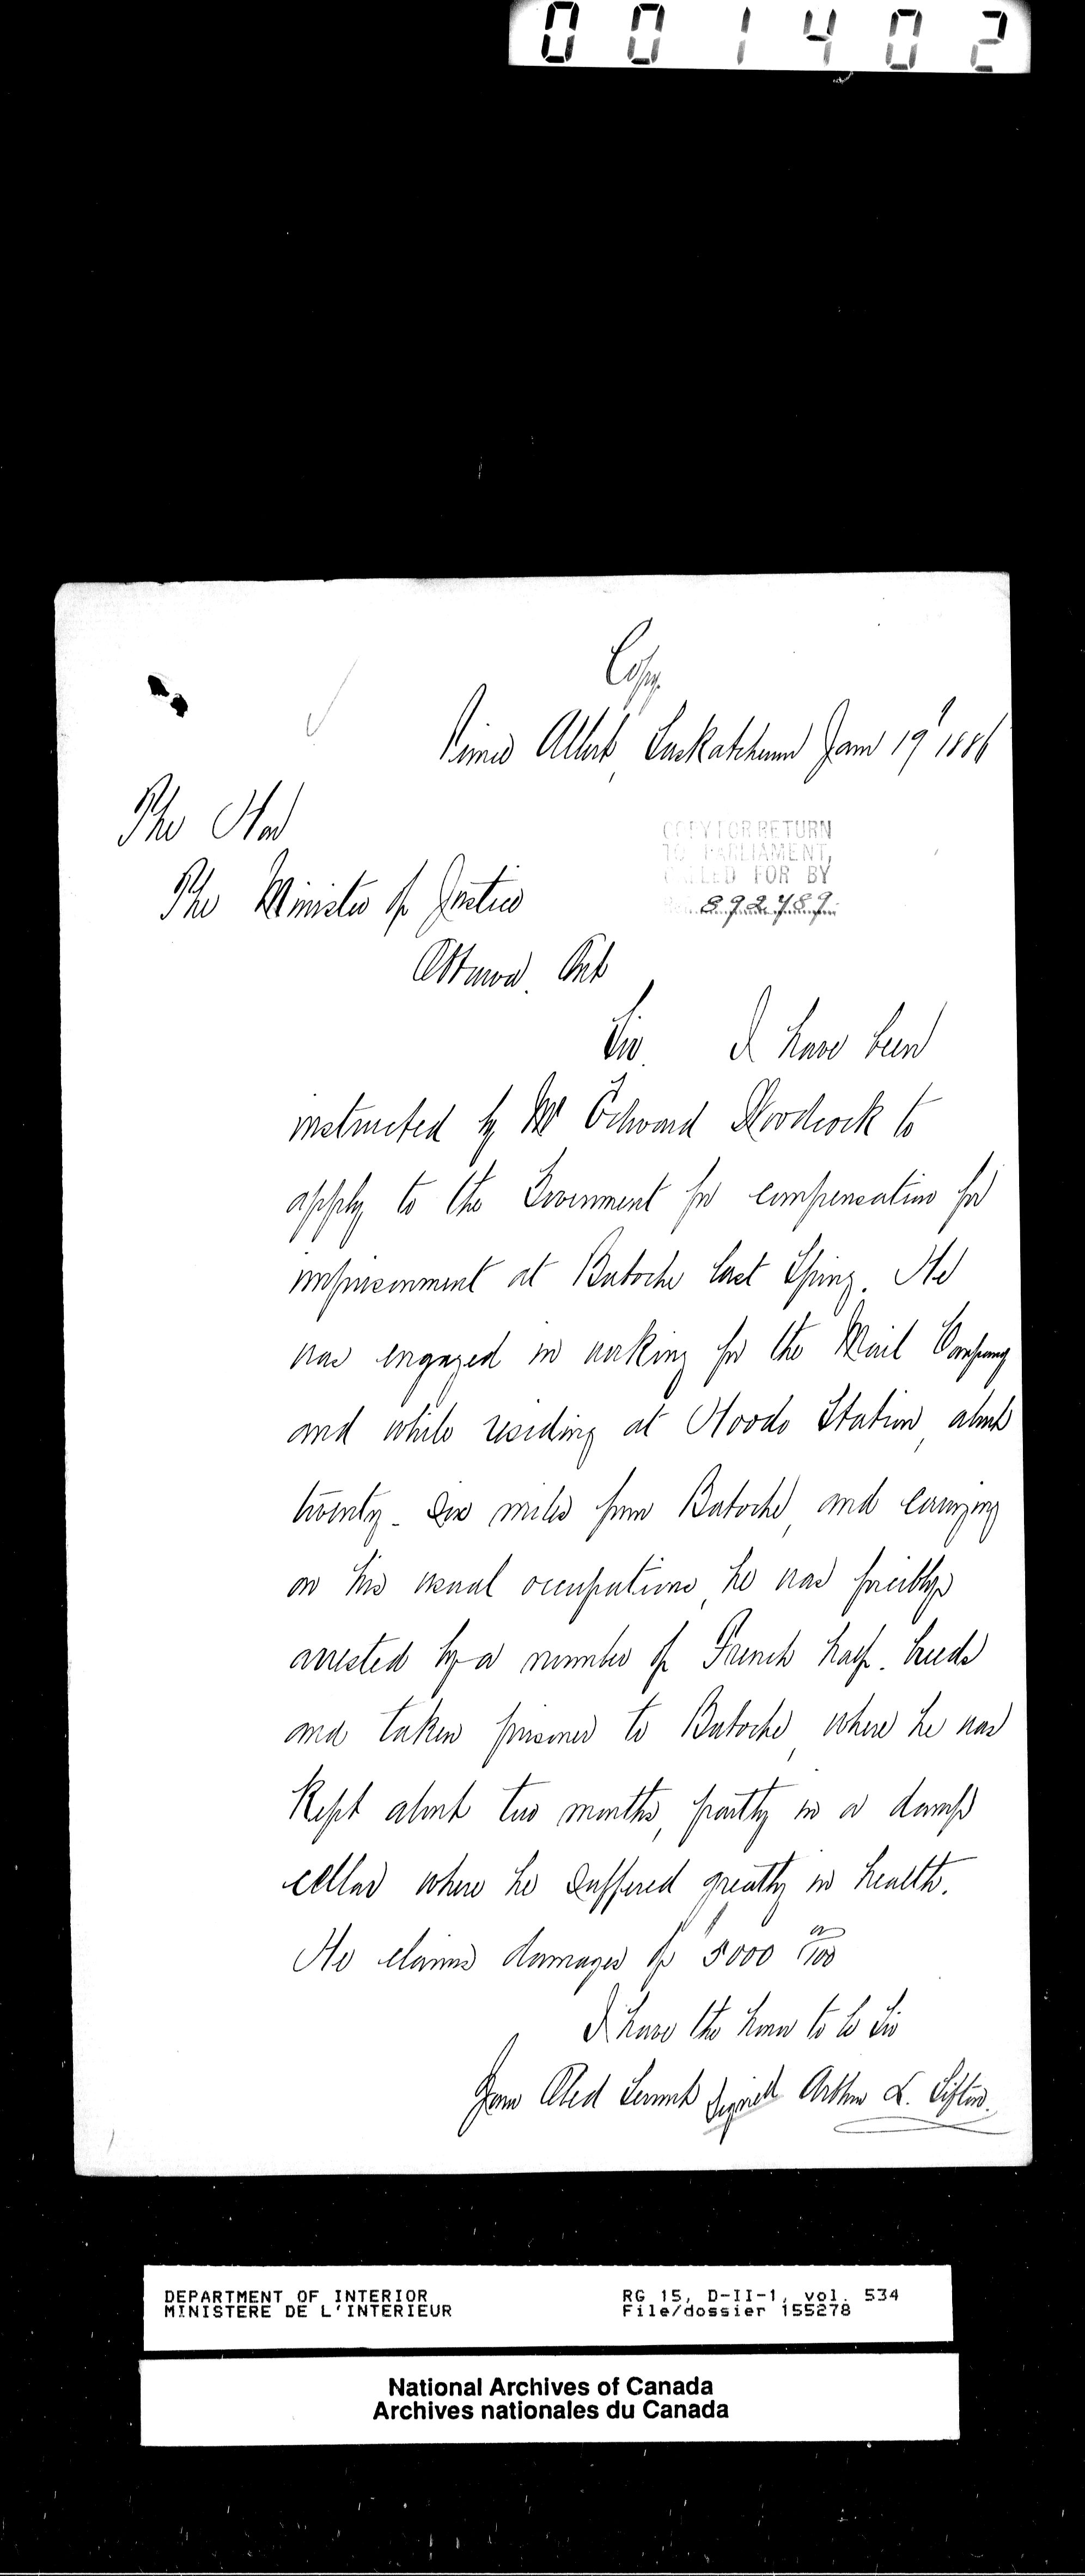 001402
Copy.
Prince Albert, Saskatchewan Jan 19th 1886
The Hon
The Minister of Justice
Ottawa. Ont
COPY FOR RETURN
TO PARLIAMENT,
CALLED FOR BY
892789
Sir. I have been
instructed by Mr Edward Woodcock to
apply to the Government for compensation for
imprisonment at Batoche last Spring. He
was engaged in working for the Mail Company
and while residing at Hoodo Station, about
twenty-six miles from Batoche, and carrying
on his usual occupations, he was forcibly
arrested by a number of French half-breeds
and taken prisoner to Batoche, where he was
kept about two months, partly in a damp
cellar where he suffered greatly in health.
He claims damages of $5000 00/100
I have the honor to be Sir
Your Obed Servant Signed Arthur L. Sifton.
DEPARTMENT OF INTERIOR
MINISTERE DE L'INTERIEUR
RG 15, D-II-1, vol. 534
File/dossier 155278
National Archives of Canada
Archives nationales du Canada